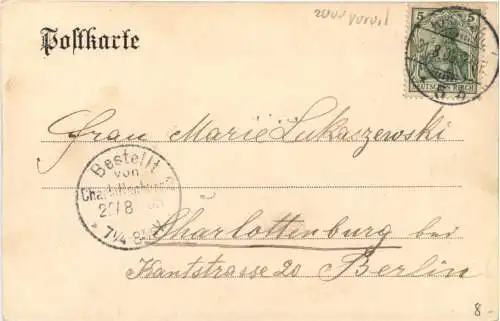 Postkarte
5 5
DEUTSCHES REICH
Frau Marie Lukaszewski
Bestellt
von
Charlottenburg
7¼-8½V
Charlottenburg bei
Kantstrasse 20 Berlin
8